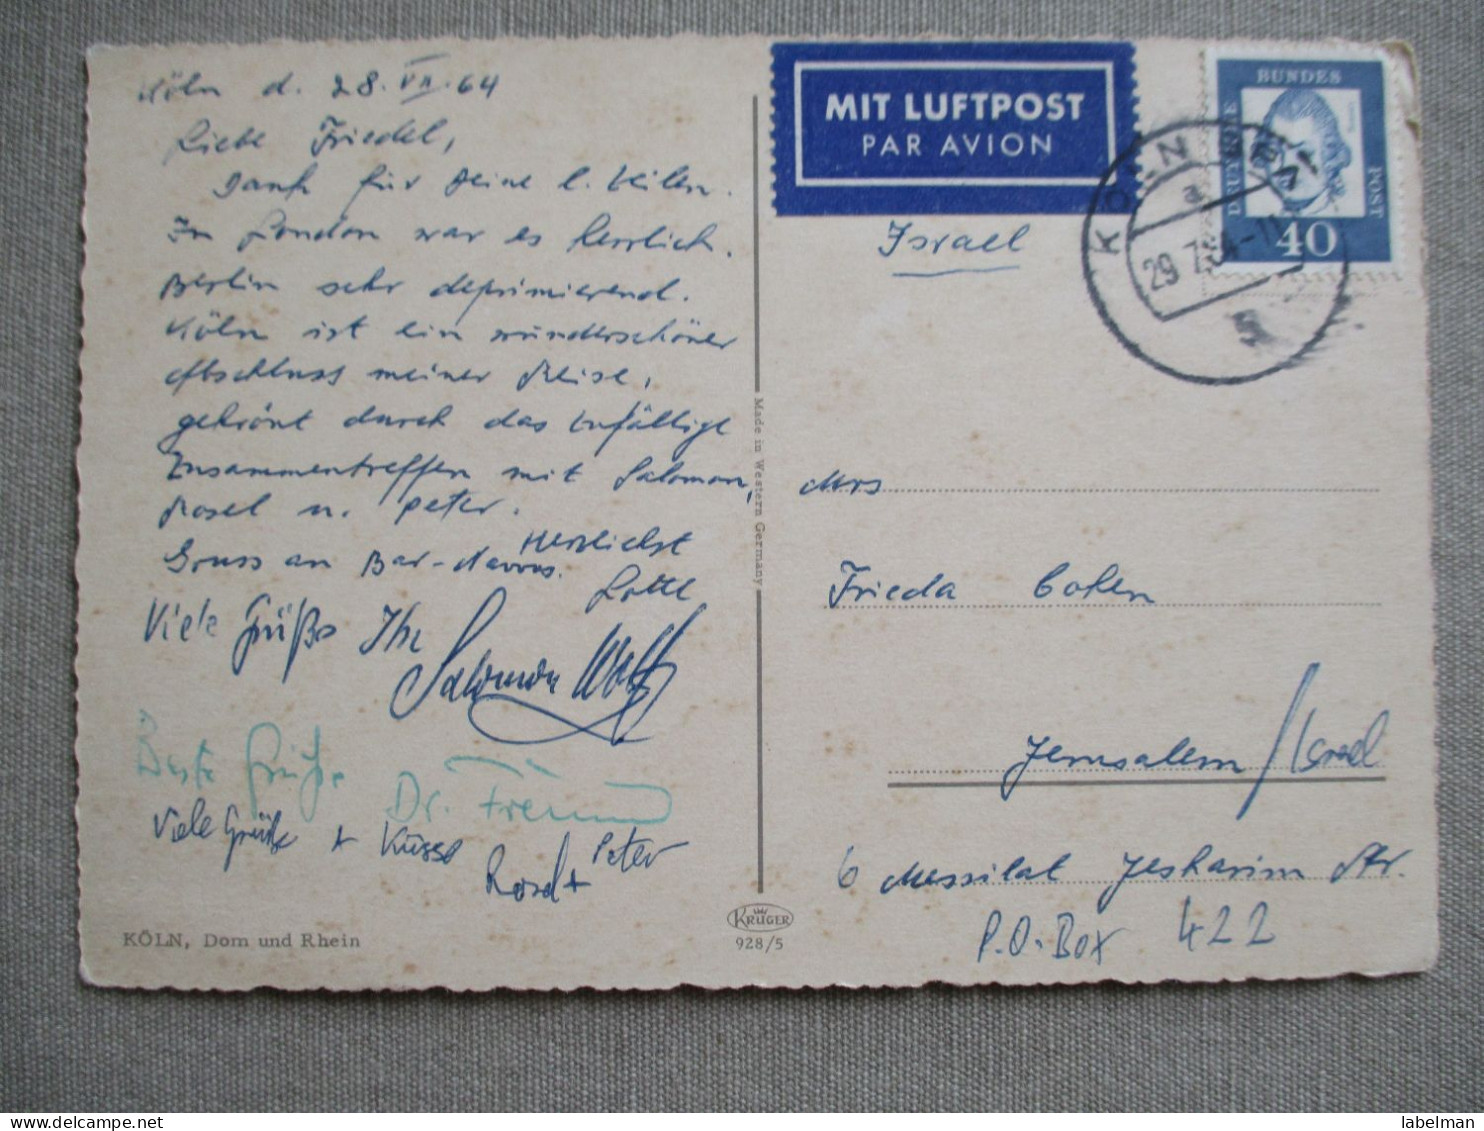 Köln d. 28. VII. 64
Liebe Friedel,
Dank für Deine l. Zeilen.
In London war es herrlich.
Berlin sehr deprimierend.
Köln ist ein wunderschöner
Abschluss meiner Reise,
gekrönt durch das zufällige
Zusammentreffen mit Salomon,
Rosel u. Peter.
Herzlichst
Gruss an Bar-Navons.
Lotte
Viele Grüße Ihr
Salomon Wolf
Beste Grüße
Dr. Freund
Viele Grüße + Küsse
Rosel + Peter
KÖLN, Dom und Rhein
Made in Western Germany
KRÜGER
928/5
MIT LUFTPOST
PAR AVION
Israel
DEUTSCHE BUNDESPOST
40
KÖLN
29.7.64-11
Mrs
Frieda Cohen
Jerusalem/Israel
6 Messilat Jesharim Str.
P.O. Box 422
labelman